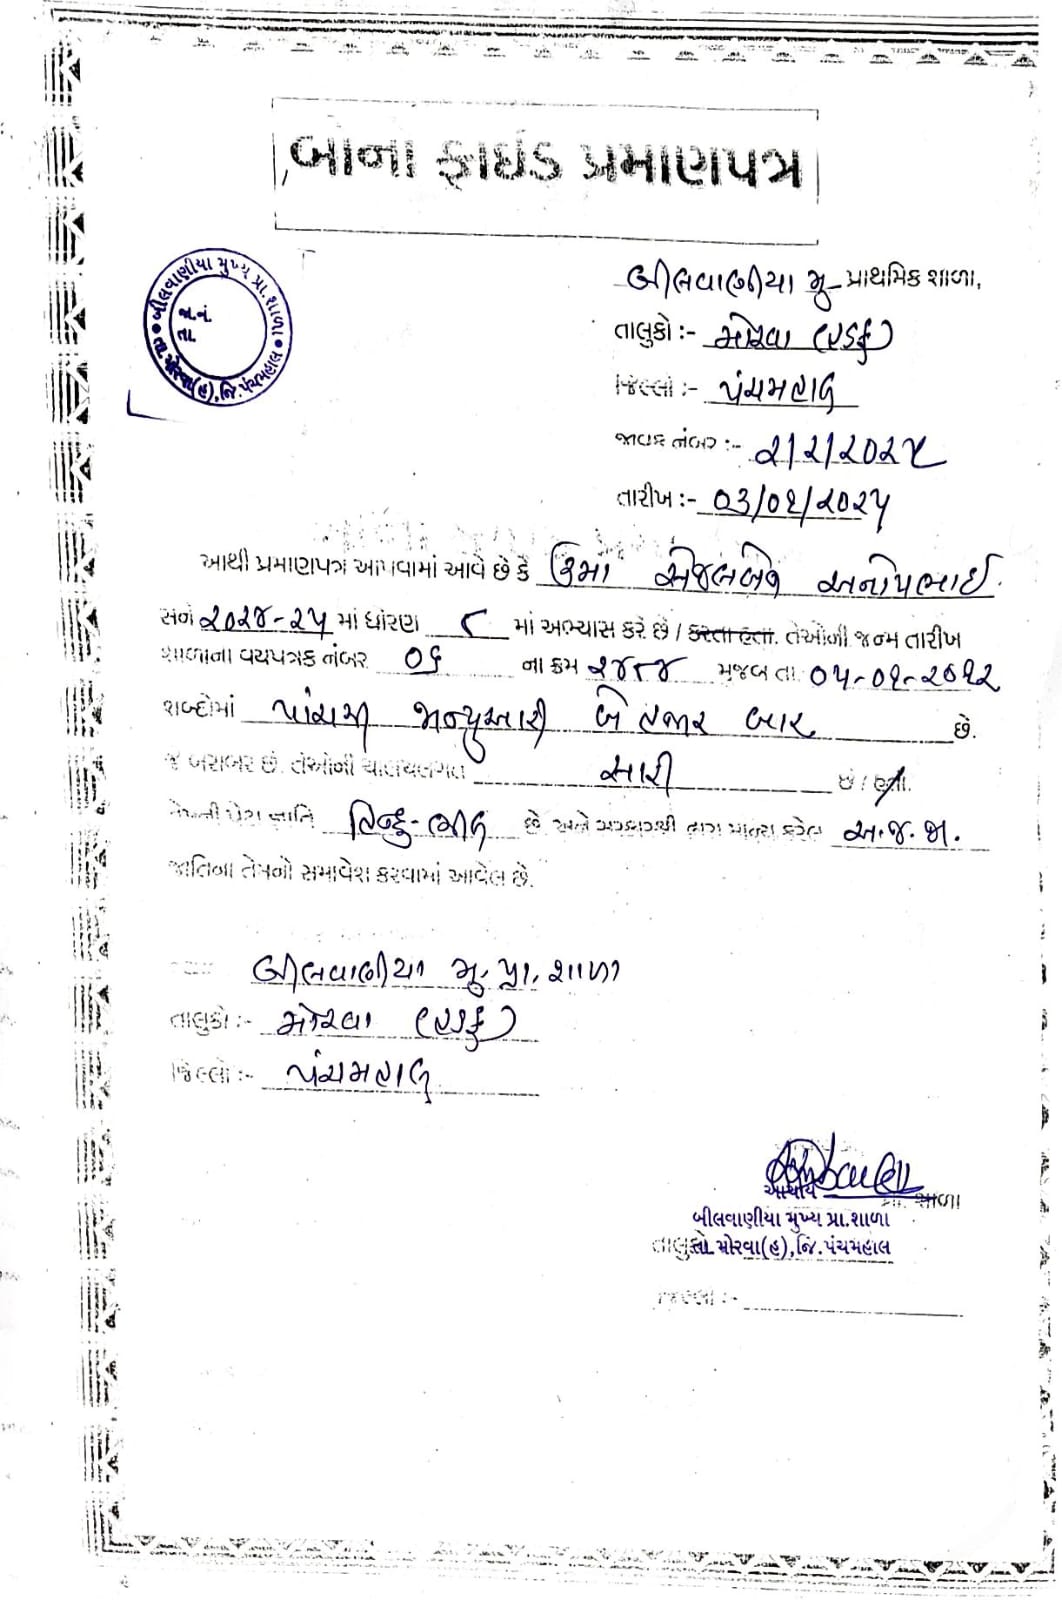 બોના ફાઇડ પ્રમાણપત્ર
બીલવાણીયા મુખ્ય પ્રા.શાળા
જા.નં.
તા.
તા.મોરવા(હ),જિ.પંચમહાલ
બીલવાણીયા મુ- પ્રાથમિક શાળા,
તાલુકો :- મોરવા (હડફ)
જિલ્લો :- પંચમહાલ
જાવક નંબર :- ૨/૨/૨૦૨૫
તારીખ :- ૦૩/૦૧/૨૦૨૫
આથી પ્રમાણપત્ર આપવામાં આવે છે કે સેજલબેન અનોપભાઈ
સને ૨૦૨૪-૨૫ માં ધોરણ ૮ માં અભ્યાસ કરે છે / કરતા હતા. તેઓની જન્મ તારીખ
શાળાના વયપત્રક નંબર ૦૬ ના ક્રમ ૨૪૮૪ મુજબ તા. ૦૫-૦૧-૨૦૧૨
શબ્દોમાં પાંચમી જાન્યુઆરી બે હજાર બાર છે.
જે બરાબર છે. તેઓની ચાલચલગત સારી છે / હતી.
તેમની પેટા જ્ઞાતિ હિન્દુ-ભીલ છે. અને સરકારશ્રી દ્વારા માન્ય કરેલ અ.જ.જા.
જાતિના તેમનો સમાવેશ કરવામાં આવેલ છે.
બીલવાણીયા મુ. પ્રા. શાળા
તાલુકો :- મોરવા (હડફ)
જિલ્લો :- પંચમહાલ
આચાર્ય પ્રા. શાળા
બીલવાણીયા મુખ્ય પ્રા.શાળા
તાલુકો તા. મોરવા(હ),જિ.પંચમહાલ
જિલ્લો :-